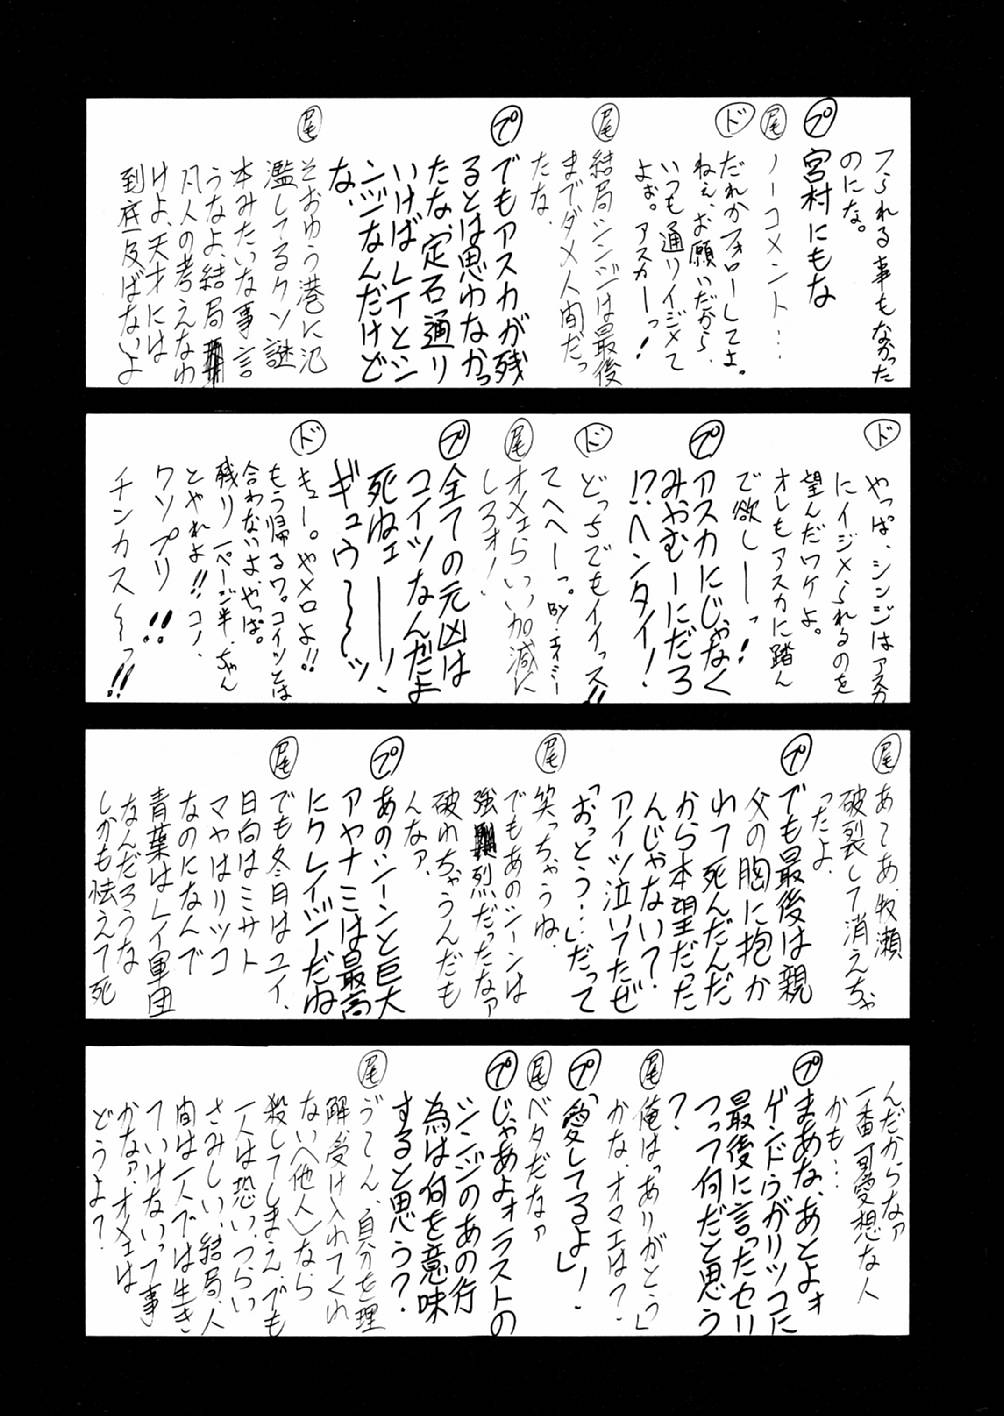 フられる事もなかった
のにな。
プ
宮村にもな
尾
ノーコメント…
ド
だれかフォローしてよ。
ねぇ、お願いだから、
いつも通りイジメて
よぉ。アスカーっ!
尾
結局シンジは最後
までダメ人間だっ
たな、
プ
でもアスカが残
るとは思わなかっ
たな、定石通り
いけばレイとシ
ンジなんだけど
な、
尾
そおゆう巷に氾
濫してるクソ謎
本みたいな事言
うなよ、結局
凡人の考えなわ
けよ、天才には
到底及ばないよ
ド
やっぱ、シンジはアスカ
にイジメられるのを
望んだワケよ。
オレもアスカに踏ん
で欲しーーっ!
プ
アスカにじゃなく
みやむーにだろ
!?ヘンタイ!
ド
どっちでもイイっス!!
てへへーっ。BY.エイジー
尾
オメェらいい加減に
しろォ!
プ
全ての元凶は
コイツなんだよ
死ねェーーー!、
ギュウ〜〜〜ッ
ド
キューー。やメロよ!!
もう帰るワ。コイツとは
合わないよ、やっぱ。
残り一ページ半、ちゃん
とやれよ!!コノ、
クソプリ!!
チンカス〜〜っ!!
尾
あ〜あ、牧瀬
破裂して消えちゃ
ったよ、
プ
でも最後は親
父の胸に抱か
れて死んだんだ
から本望だった
んじゃない?
アイツ泣いてたぜ
「おっとう…」だって
尾
笑っちゃうね、
でもあのシーンは
強烈だったなァ
破れちゃうんだも
んなァ、
プ
あのシーンと巨大
アヤナミは最高
にクレイジーだね
尾
でも冬月はユイ、
日向はミサト
マヤはリツコ
なのになんで
青葉はレイ軍団
なんだろうな
しかも怯えて死
んだからなァ
一番可愛想な人
かも…
プ
まあな、あとよォ
ゲンドウがリツコに
最後に言ったセリ
フって何だと思う
?
尾
俺は「ありがとう」
かな、オマエは?
プ
「愛してるよ」
尾
ベタだなァ
プ
じゃあよォラストの
シンジのあの行
為は何を意味
すると思う?
尾
う〜ん、自分を理
解受け入れてくれ
ない〈他人〉なら
殺してしまえ、でも
一人は恐い、つらい
さみしい、結局、人
間は一人では生き
ていけないって事
かなァ、オメェは
どうよ?